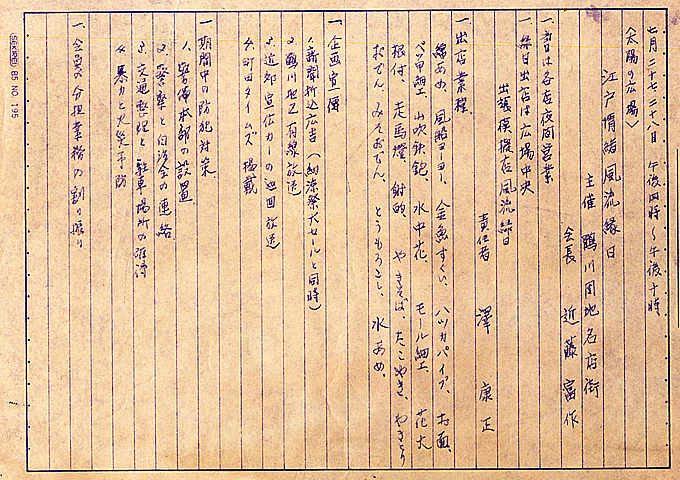 七月二十七、二十八日 午後四時〜午後十時
〈太陽の広場〉
江戸情緒風流縁日
主催 鶴川団地名店街
会長 近藤富作
一、昔は各店夜間営業
一、縁日出店は広場中央
出張模擬店風流縁日
責任者 澤 康正
一、出店業種
綿あめ、風船ヨーヨー、金魚すくい、ハッカパイプ、お面、
ベッ甲細工、山吹鉄砲、水中花、モール細工、花火
根付、走馬燈、射的、やきそば、たこやき、やきとり
おでん、みそおでん、とうもろこし、水あめ、
一、企画宣傳
1、新聞折込広告(納涼祭大セールと同時)
2、鶴川地区有線放送
3、近郊宣伝カーの巡回放送
4、町田タイムズ掲載
一、期間中の防犯対策
1、警備本部の設置
2、警察と自治会の連絡
3、交通整理と駐車場所の確保
4、暴力と火災予防
一、会員の分担業務の割り振り
SEKIREI 85 NO 195